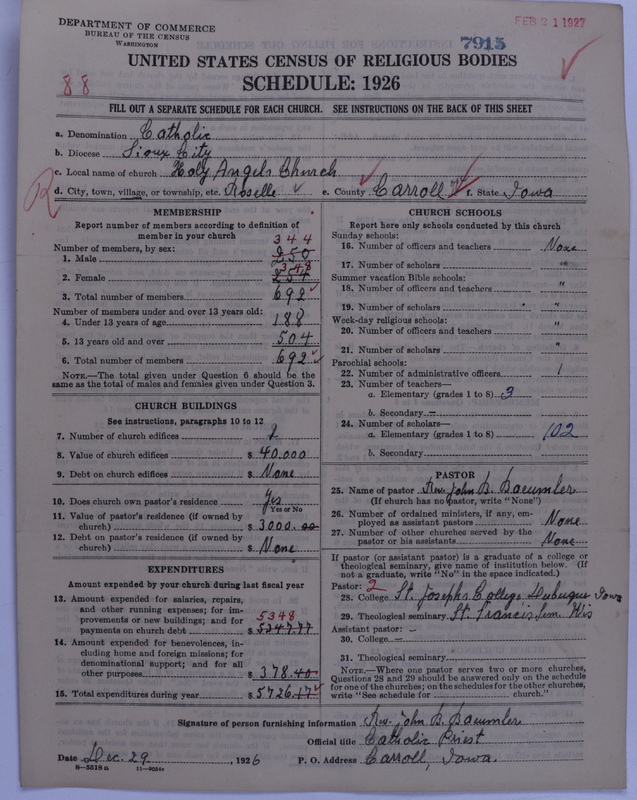 DEPARTMENT OF COMMERCE
BUREAU OF THE CENSUS
WASHINGTON
FEB 21 1927
7915
UNITED STATES CENSUS OF RELIGIOUS BODIES
88
SCHEDULE: 1926
FILL OUT A SEPARATE SCHEDULE FOR EACH CHURCH. SEE INSTRUCTIONS ON THE BACK OF THIS SHEET
a. Denomination Catholic
b. Diocese Sioux City
c. Local name of church Holy Angels Church
R
d. City, town, village, or township, etc. Roselle e. County Carroll f. State Iowa
MEMBERSHIP
Report number of members according to definition of
member in your church
Number of members, by sex:
344
1. Male 350
348
2. Female
3. Total number of members 692
Number of members under and over 13 years old:
4. Under 13 years of age 188
5. 13 years old and over 504
6. Total number of members 692
NOTE.—The total given under Question 6 should be
same as the total of males and females given under Question 3.
CHURCH BUILDINGS
See instructions, paragraphs 10 to 12
7. Number of church edifices 1
8. Value of church edifices $ 40.000
9. Debt on church edifices $ None
10. Does church own pastor's residence? Yes
Yes or No
11. Value of pastor's residence (if owned by
church) $ 3000.00
12. Debt on pastor's residence (if owned by
church) $ None
EXPENDITURES
Amount expended by your church during last fiscal year
13. Amount expended for salaries, repairs,
and other running expenses; for im-
provements or new buildings; and for 5348
payments on church debt $ 5347.77
14. Amount expended for benevolences, in-
cluding home and foreign missions; for
denominational support; and for all
other purposes $ 378.40
15. Total expenditures during year $ 5726.17
CHURCH SCHOOLS
Report here only schools conducted by this church
Sunday schools:
16. Number of officers and teachers None
17. Number of scholars "
Summer vacation Bible schools:
18. Number of officers and teachers "
19. Number of scholars "
Week-day religious schools:
20. Number of officers and teachers "
21. Number of scholars "
Parochial schools:
22. Number of administrative officers 1
23. Number of teachers—
a. Elementary (grades 1 to 8) 3
b. Secondary –
24. Number of scholars—
a. Elementary (grades 1 to 8) 102
b. Secondary
PASTOR
25. Name of pastor Rev. John B. Baeumler
(If church has no pastor, write "None")
26. Number of ordained ministers, if any, em-
ployed as assistant pastors None
27. Number of other churches served by the
pastor or his assistants None
If pastor (or assistant pastor) is a graduate of a college or
theological seminary, give name of institution below. (If
not a graduate, write "No" in the space indicated.)
Pastor: 2
28. College St. Josephs College Dubuque Iowa
29. Theological seminary St. Francis Sem. Wis
Assistant pastor: –
30. College –
31. Theological seminary
NOTE.—Where one pastor serves two or more churches,
Questions 28 and 29 should be answered only on the schedule
for one of the churches; on the schedules for the other churches,
write "See schedule for church."
Signature of person furnishing information Rev. John B. Baeumler
Official title Catholic Priest
Date Dec. 29, 1926 P. O. Address Carroll, Iowa.
8—5518a 11—9054c